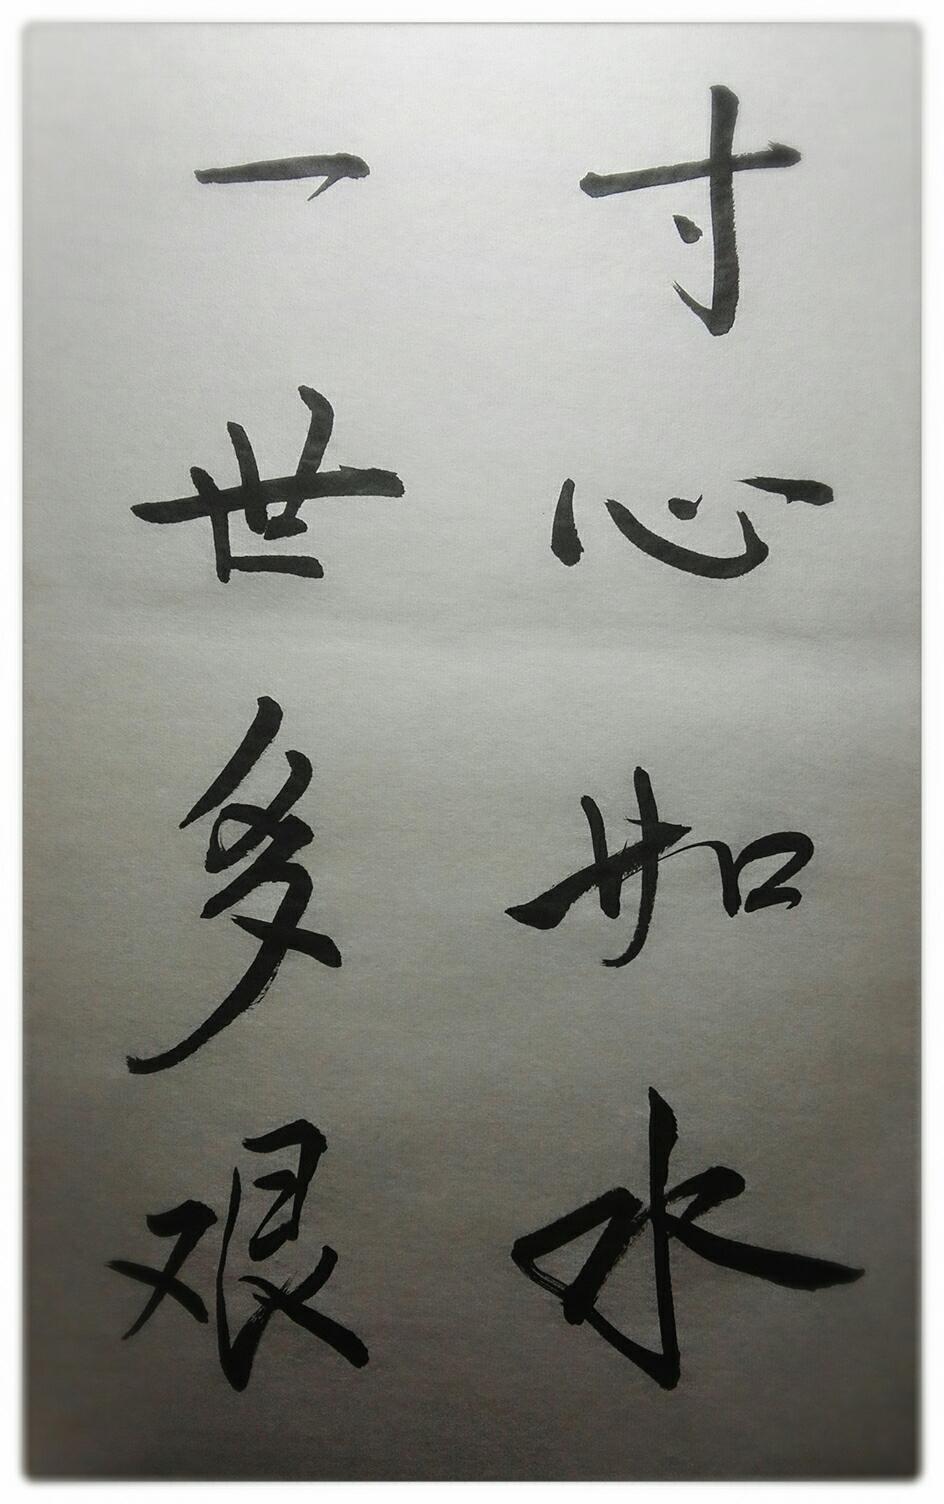 寸心如水
一世多艰